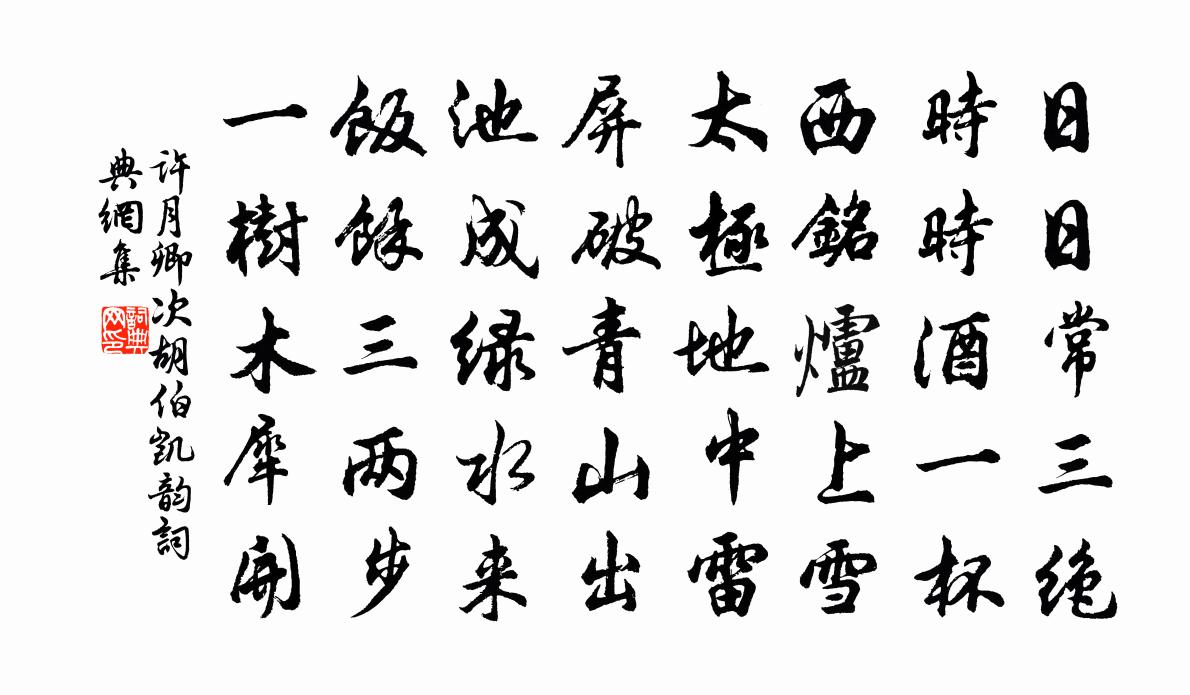 日日常三绝
時時酒一杯
西銘爐上雪
太極地中雷
屏破青山出
池成绿水来
飯餘三两步
一樹木犀開
許月卿次胡伯凱韵詞
典網集
詞典
网印